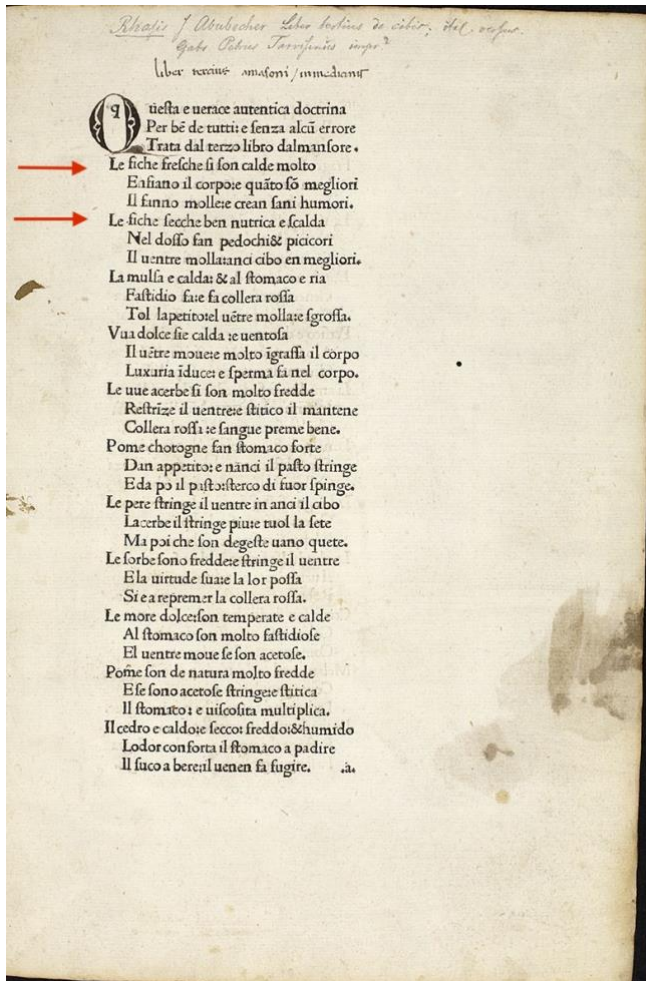 Rhasis f Abubecher Liber tertius de cibis; ital. versus.
Gabr Petrus Tarvisinus impr.
liber tercius amasoni
Questa e uerace autentica doctrina
Per bē de tutti: e senza alcū errore
Trata dal terzo libro dalmansore.
Le fiche fresche si son calde molto
Enfiano il corpo:e quāto sō megliori
Il fanno molle:e crean sani humori.
Le fiche secche ben nutrica e scalda
Nel dosso fan pedochi& picicori
Il uentre molla:anci cibo en megliori.
La mulsa e calda: & al stomaco e ria
Fastidio fa:e fa collera rossa
Tol lapetito:el uētre molla:e sgrossa.
Vua dolce sie calda :e uentosa
Il uētre moue:e molto īgrassa il corpo
Luxuria īduce: e sperma fa nel corpo.
Le uue acerbe si son molto fredde
Restrīze il uentre:e stitico il mantene
Collera rossa :e sangue preme bene.
Pome chotogne fan stomaco forte
Dan appetito: e nānci il pasto stringe
E da po il pasto:sterco di fuor spinge.
Le pere stringe il uentre in anci il cibo
Lacerbe il stringe piu:e tuol la sete
Ma poi che son degeste uano quete.
Le sorbe sono fredde:e stringe il uentre
E la uirtude sua:e la lor possa
Si e a repremer la collera rossa.
Le more dolce:son temperate e calde
Al stomaco son molto fastidiose
El uentre moue se son acetose.
Pom̄e son de natura molto fredde
E se sono acetose stringe:e stitica
Il stomato: e uiscosita multiplica.
Il cedro e caldo:e secco: freddo:&humido
Lodor conforta il stomaco a padire
Il suco a bere:il uenen fa fugire. .a.